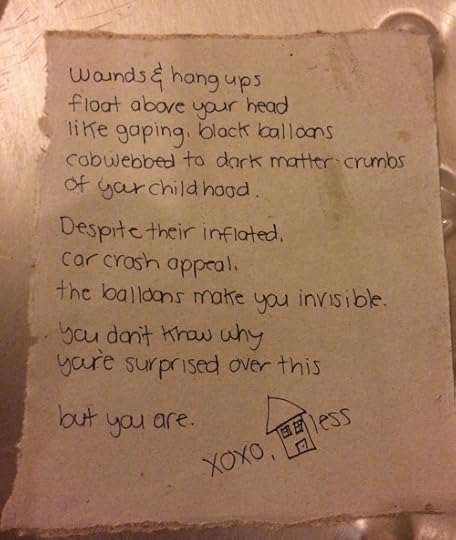 Wounds & hang ups
float above your head
like gaping, black balloons
cobwebbed to dark matter-crumbs
of your childhood.
Despite their inflated,
car crash appeal,
the balloons make you invisible.
you don't know why
you're surprised over this
but you are.
xoxo, less